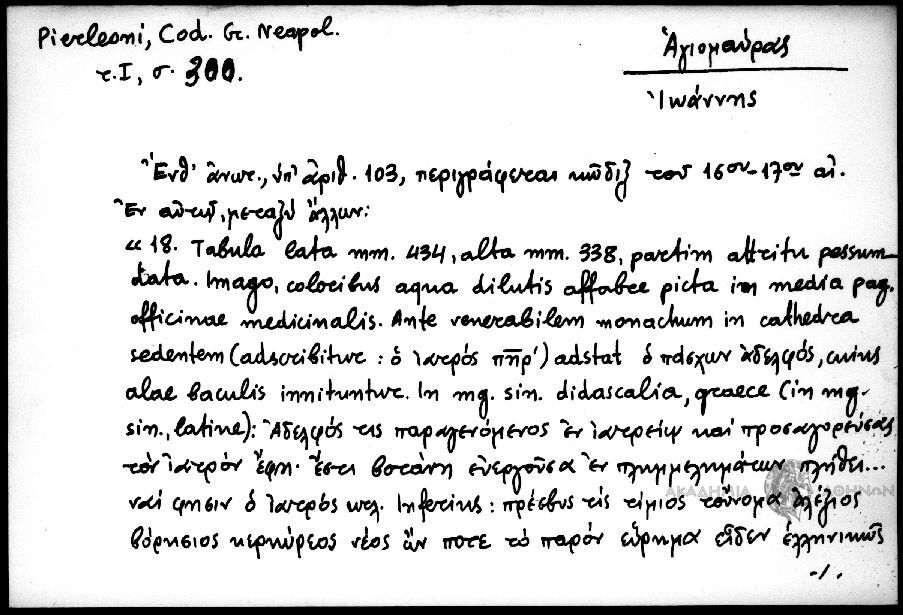 Pierleoni, Cod. Gr. Neapol.
τ. I, σ. 300.
Ἁγιομαύρας
Ἰωάννης
Ἔνθ' ἄνωτ., ὑπ' ἀριθ. 103, περιγράφεται κῶδιξ τοῦ 16ου-17ου αἰ.
Ἐν αὐτῷ, μεταξὺ ἄλλων:
« 18. Tabula lata mm. 434, alta mm. 338, partim attritu pessum
data. Imago, coloribus aqua dilutis affabre picta in media pag.
officinae medicinalis. Ante venerabilem monachum in cathedra
sedentem (adscribitur : ὁ ἰατρός πῆρ') adstat ὁ πάσχων ἀδελφός, cuius
alae baculis innituntur. In mg. sin. didascalia, graece (in mg.
sin., latine): Ἀδελφός τις παραγενόμενος ἐν ἰατρείῳ καὶ προσαγορεύσας
τὸν ἰατρὸν ἔφη· ἔστι βοτάνη ἐνεργοῦσα ἐν πλημμελημάτων πλήθει...
ναί φησιν ὁ ἰατρός κτλ. Inferius : πρέσβυς τίς τίμιος τοὔνομα Ἀλέξιος
βόρησιος κερκύρεος νέος ὤν ποτε τὸ παρὸν εὕρημα εἶδεν ἑλληνικῶς
-/.
ΑΚΑΔΗΜΙΑ ΑΘΗΝΩΝ